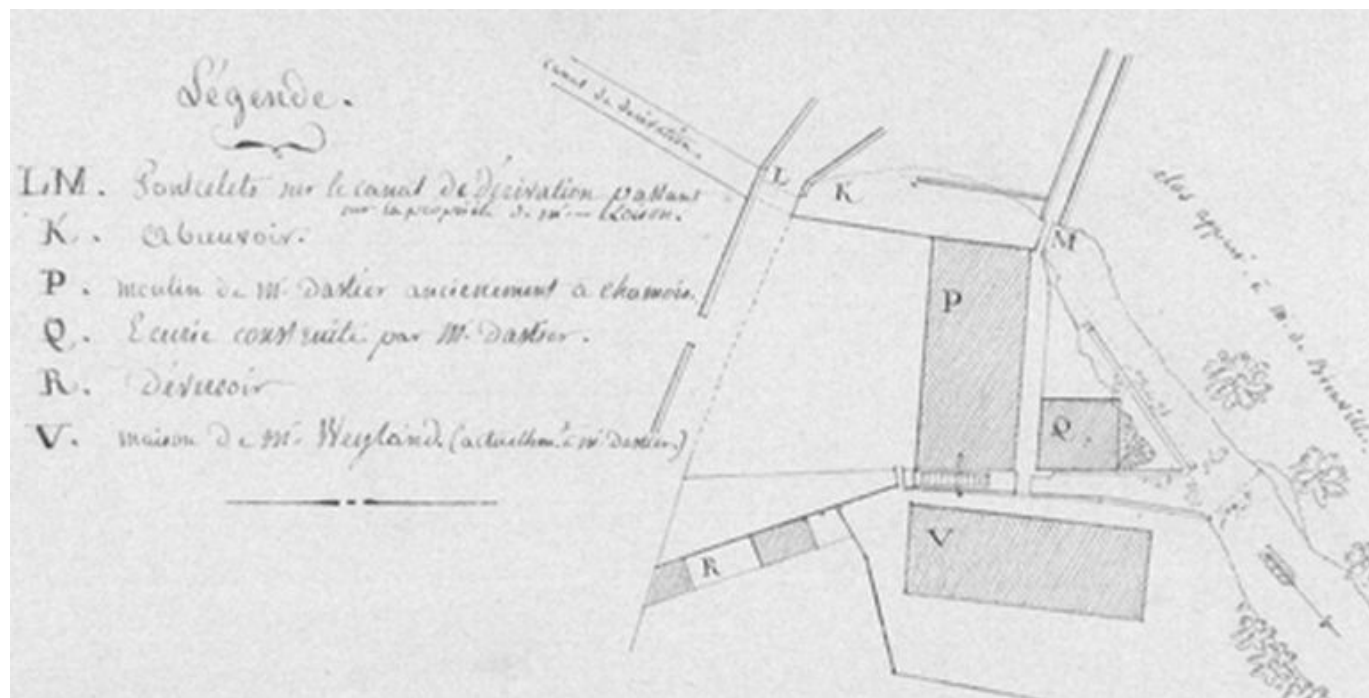 Légende.
LM. Pontcelets sur le canal de dérivation passant
sur la propriété de Mr. Loison.
K. Abreuvoir.
P. moulin de Mr. Dastier anciennement à chamois.
Q. Ecurie construite par Mr. Dastier.
R. Déversoir
V. maison de Mr. Weyland. (actuellemt. à Mr. Dastier)
canal de dérivation.
L
K
M
P
Q.
R
V
clos appart. à M. de